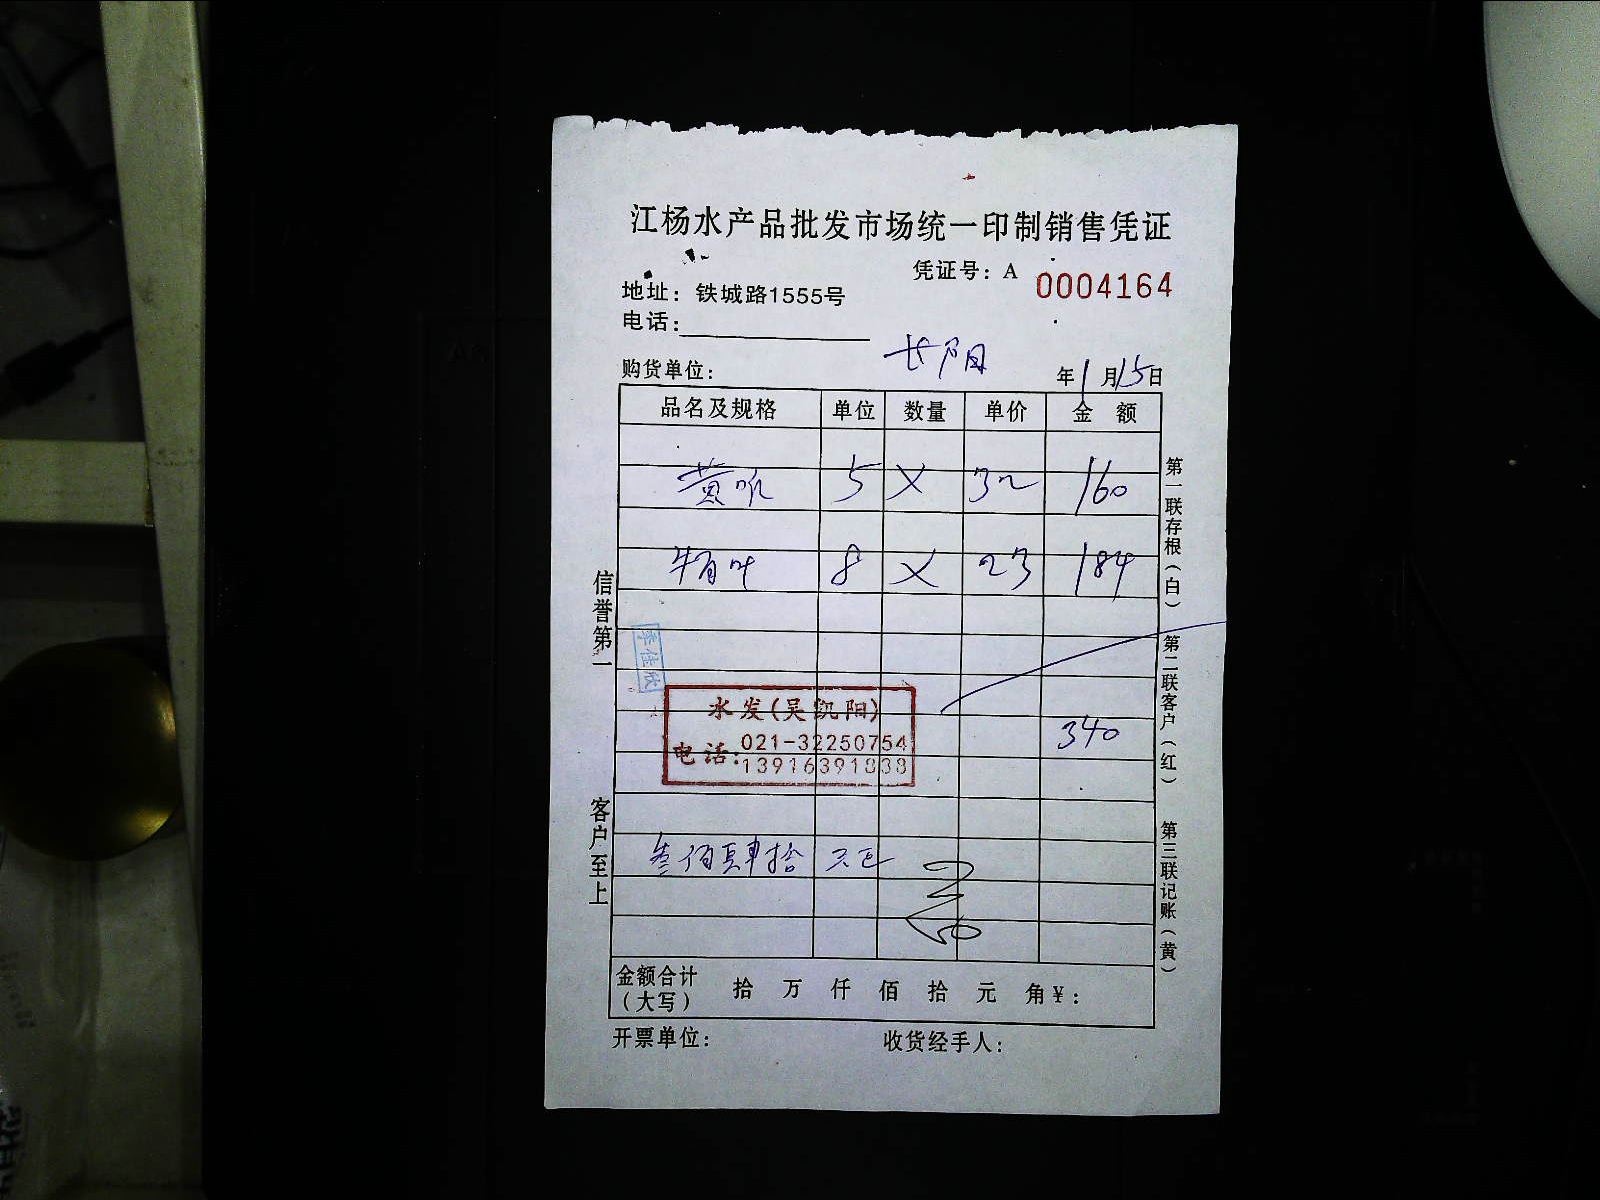 江杨水产品批发市场统一印制销售凭证
凭证号：A 0004164
地址：铁城路1555号
电话：
长阳
购货单位： 年1月15日
品名及规格 单位 数量 单价 金额
黄 5 × 32 160
8 × 23 184
李佳欣
水发(吴凯阳)
电话：021-32250754
13916391838
340
叁佰肆拾元正
金额合计（大写） 拾 万 仟 佰 拾 元 角 ¥：
开票单位： 收货经手人：
信誉第一
客户至上
第一联存根（白）
第二联客户（红）
第三联记账（黄）